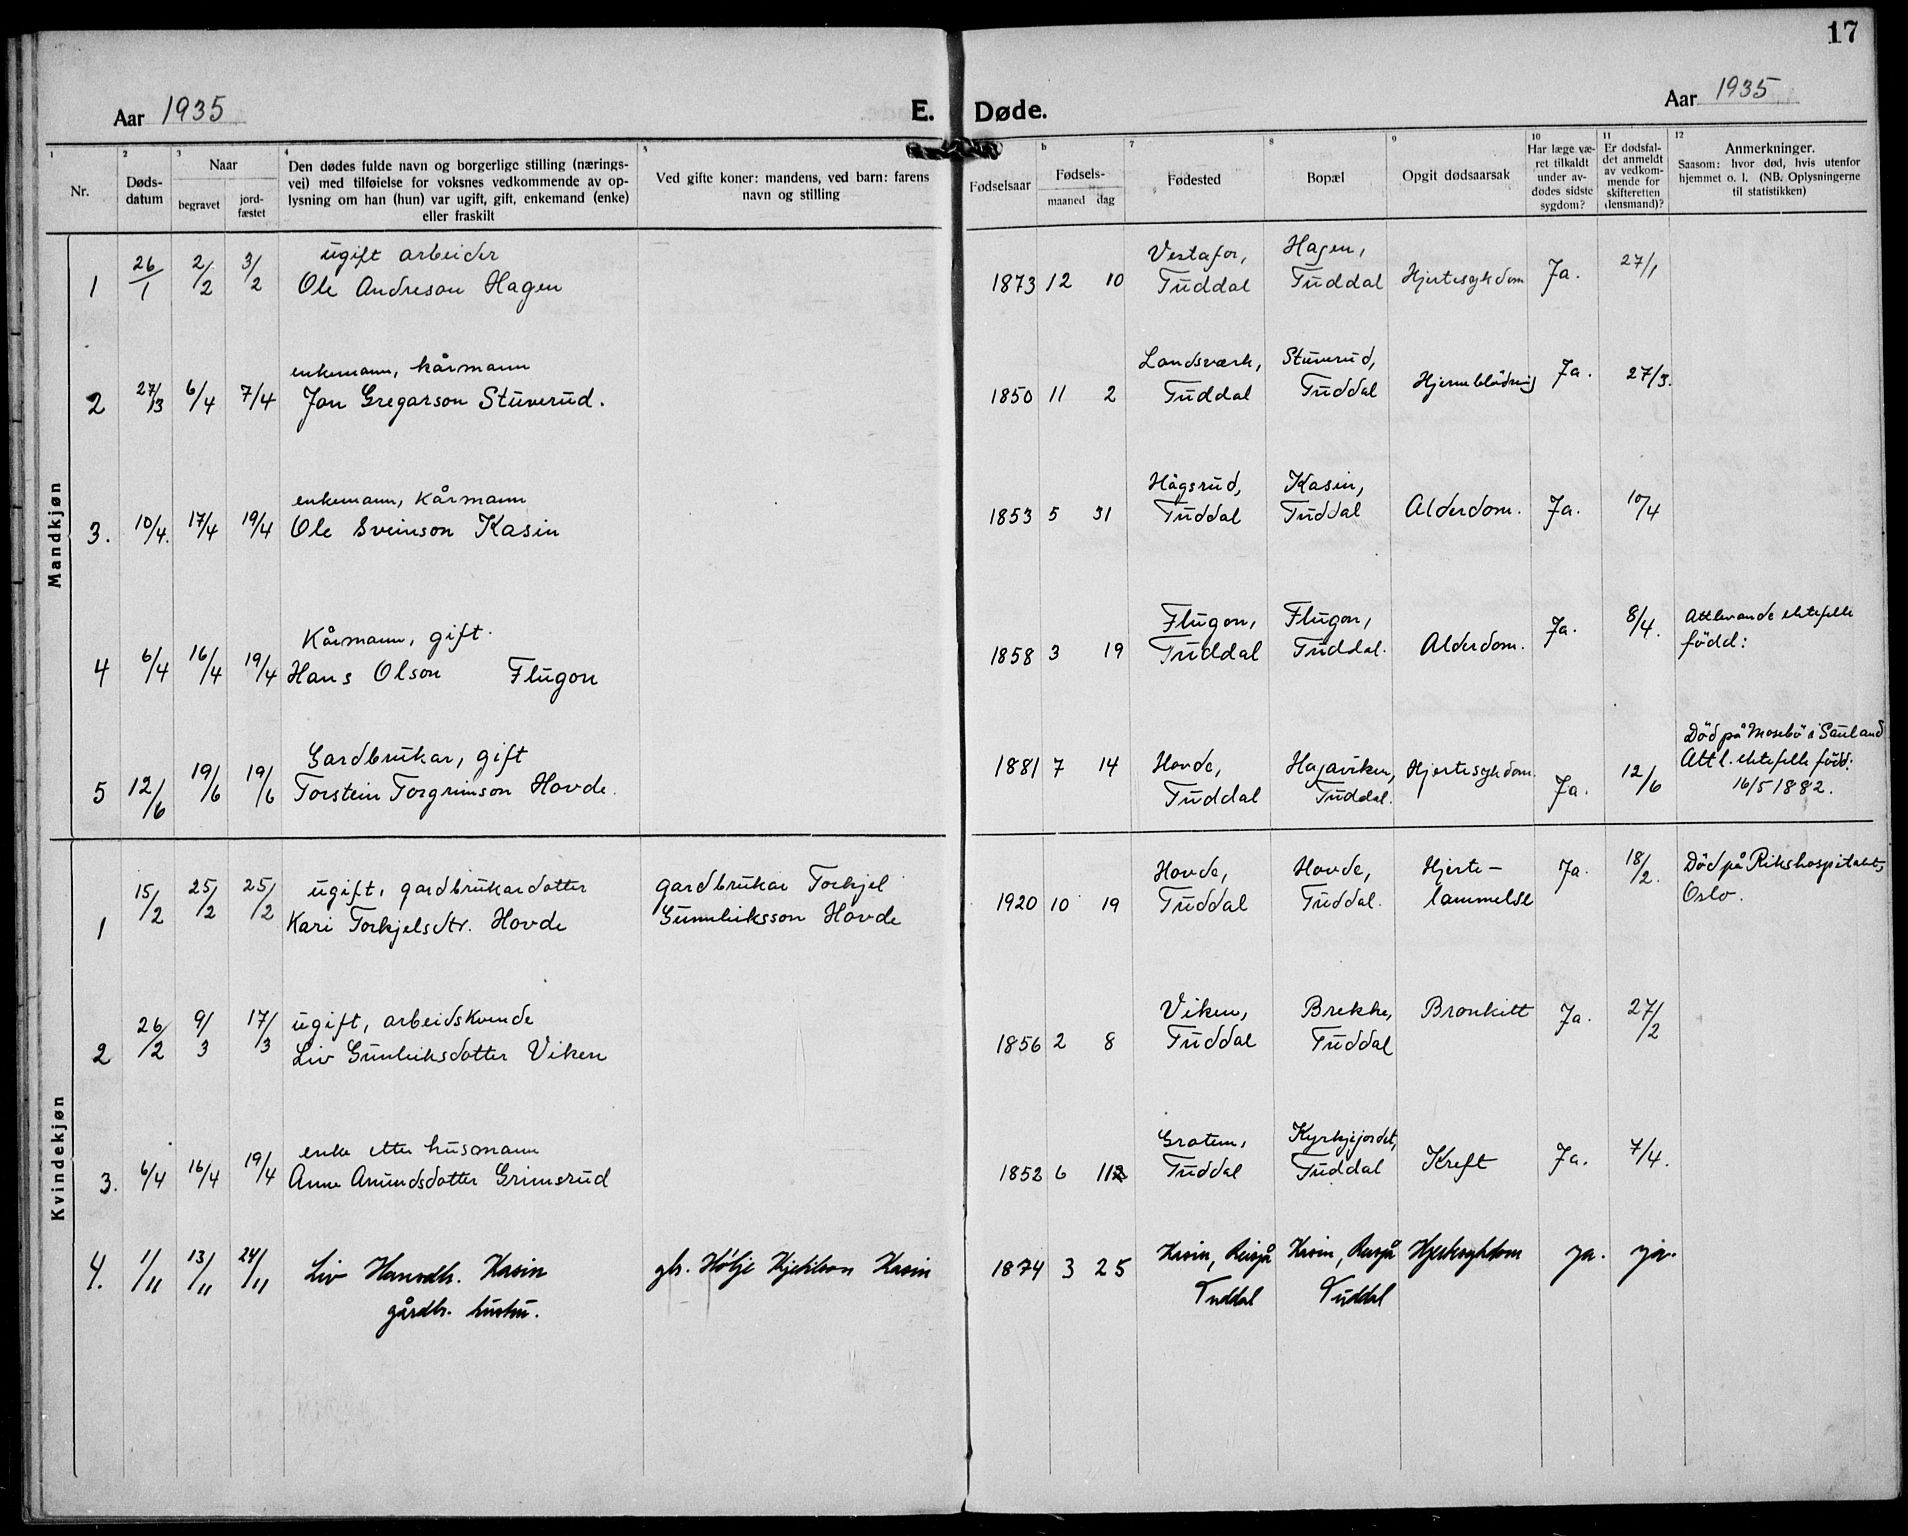 17
Aar 1935
E. Døde.
Aar 1935
1 2 3 4 5 6 7 8 9 10 11 12
Nr.
Døds-
datum
Naar
begravet
jord-
fæstet
Den dødes fulde navn og borgerlige stilling (nærings-
vei) med tilføielse for voksnes vedkommende av op-
lysning om han (hun) var ugift, gift, enkemand (enke)
eller fraskilt
Ved gifte koner: mandens, ved barn: farens
navn og stilling
Fødselsaar
Fødsels-
maaned dag
Fødested
Bopæl
Opgit dødsaarsak
Har læge væ-
ret tilkaldt
under av-
dødes sidste
sygdom?
Er dødsfal-
det anmeldt
av vedkom-
mende for
skifteretten
(lensmand)?
Anmerkninger.
Saasom: hvor død, hvis utenfor
hjemmet o. l. (NB. Oplysningerne
til statistikken)
Mandkjøn
ugift arbeider Vestafor, Hagen,
1 26/1 2/2 3/2 Ole Andreson Hagen 1873 12 10 Tuddal Tuddal Hjertesykdom Ja. 27/1
enkemann, kårmann Landsverk, Stuverud,
2 27/3 6/4 7/4 Jon Gregarson Stuverud. 1850 11 2 Tuddal Tuddal Hjerneblødning Ja. 27/3.
enkemann, kårmann Hågsrud, Kasin,
3. 10/4. 17/4 19/4 Ole Sveinson Kasin 1853 5 31 Tuddal Tuddal Alderdom. Ja. 10/4
Kårmann, gift. Flugon, Flugon, Attlevande ektefelle
4 6/4 16/4 19/4 Hans Olson Flugon 1858 3 19 Tuddal Tuddal. Alderdom. Ja. 8/4. född:
Gardbrukar, gift Hovde, Hagaviken, Död på Mosebö i Sauland
5 12/6 19/6 19/6 Torstein Torgrimson Hovde. 1881 7 14 Tuddal Tuddal. Hjertesykdom. Ja. 12/6 Attl. ektefelle född:
16/5 1882.
Kvindekjøn
ugift, gardbrukardotter gardbrukar Torkjel Hovde, Hovde, Hjerte- Død på Rikshospitalet,
1 15/2 25/2 25/2 Kari Torkjelsdtr. Hovde Gunleiksson Hovde 1920 10 19 Tuddal Tuddal. lammelse Ja. 18/2. Oslo.
ugift, arbeidskvende Viken, Brekke,
2 26/2 9/3 17/3 Liv Gunleiksdotter Viken 1856 2 8 Tuddal Tuddal Bronkitt Ja. 27/2
enke etter husmann Graten, Kyrkjejordet,
3. 6/4 16/4 19/4 Anne Amundsdotter Grimsrud 1852 6 11 Tuddal Tuddal Kreft Ja. 7/4.
4. 1/11 13/11 24/11 Liv Hansdtr. Kasin gbr. Hølje Kjetilson Kasin 1874 3 25 Kasin, Reisjå Kasin, Reisjå Hjertesykdom ja. ja.
gårdbr. hustru. Tuddal Tuddal